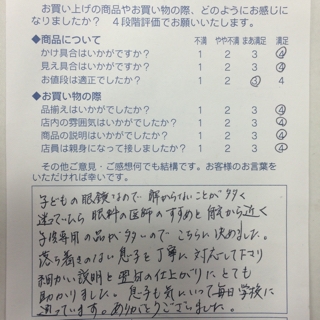 お買い上げの商品やお買い物の際、どのようにお感じに
なりましたか？ ４段階評価でお願いいたします。
◆商品について 不満 やや不満 まあ満足 満足
かけ具合はいかがですか？ 1 2 3 4
見え具合はいかがですか？ 1 2 3 4
お値段は適正でしたか？ 1 2 3 4
◆お買い物の際
品揃えはいかがでしたか？ 1 2 3 4
店内の雰囲気はいかがですか？ 1 2 3 4
商品の説明はいかがでしたか？ 1 2 3 4
店員は親身になって接しましたか？ 1 2 3 4
その他ご意見・ご感想何でも結構です。お客様のお言葉を
いただければ幸いです。
子どもの眼鏡なので 解からないことが多く
迷っていたら 眼科の医師のすすめと 自宅から近く
子供専用の品が多いので こちらに決めました。
落ち着きのない息子を丁寧に対応して下さり
細かい説明と 翌日の仕上がりに とても
助かりました。息子も気にいって毎日学校に
通っています。ありがとうございました。